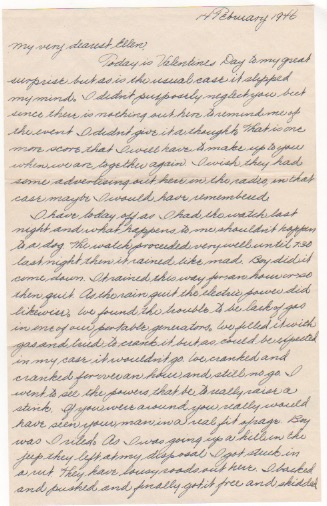 14 February 1946
My very dearest Ellen,
Today is Valentines Day to my great
surprise but as is the usual case it slipped
my mind. I didnt purposely neglect you but
since there is nothing out here to remind me of
the event I didnt give it a thought. That is one
more score that I will have to make up to you
when we are together again. I wish they had
some advertising out here in the radio, in that
case maybe I would have remembered.
I have today off as I had the watch last
night and what happens to me shouldnt happen
to a dog. The watch proceeded very well until 730
last night then it rained like mad. Boy did it
come down. It rained this way for an hour
then quit. As the rain quit the electric power did
likewise. We found the trouble to be lack of gas
in one of our portable generators. We filled it with
gas and tried to crank it but as could be expected
in my case it wouldnt go. We cranked and
cranked for over an hour and still no go. I
went to see the powers that be to really raise a
stink. If you were around you really would
have seen your man in a real fit of rage. Boy
was I riled. As I was going up a hill in the
jeep they left at my disposal I got stuck in
a rut. They have lousy roads out here. I backed
and pushed and finally got it free and skidded